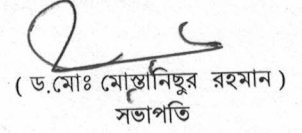 ( ড.মোঃ মোস্তানিছুর রহমান )
সভাপতি